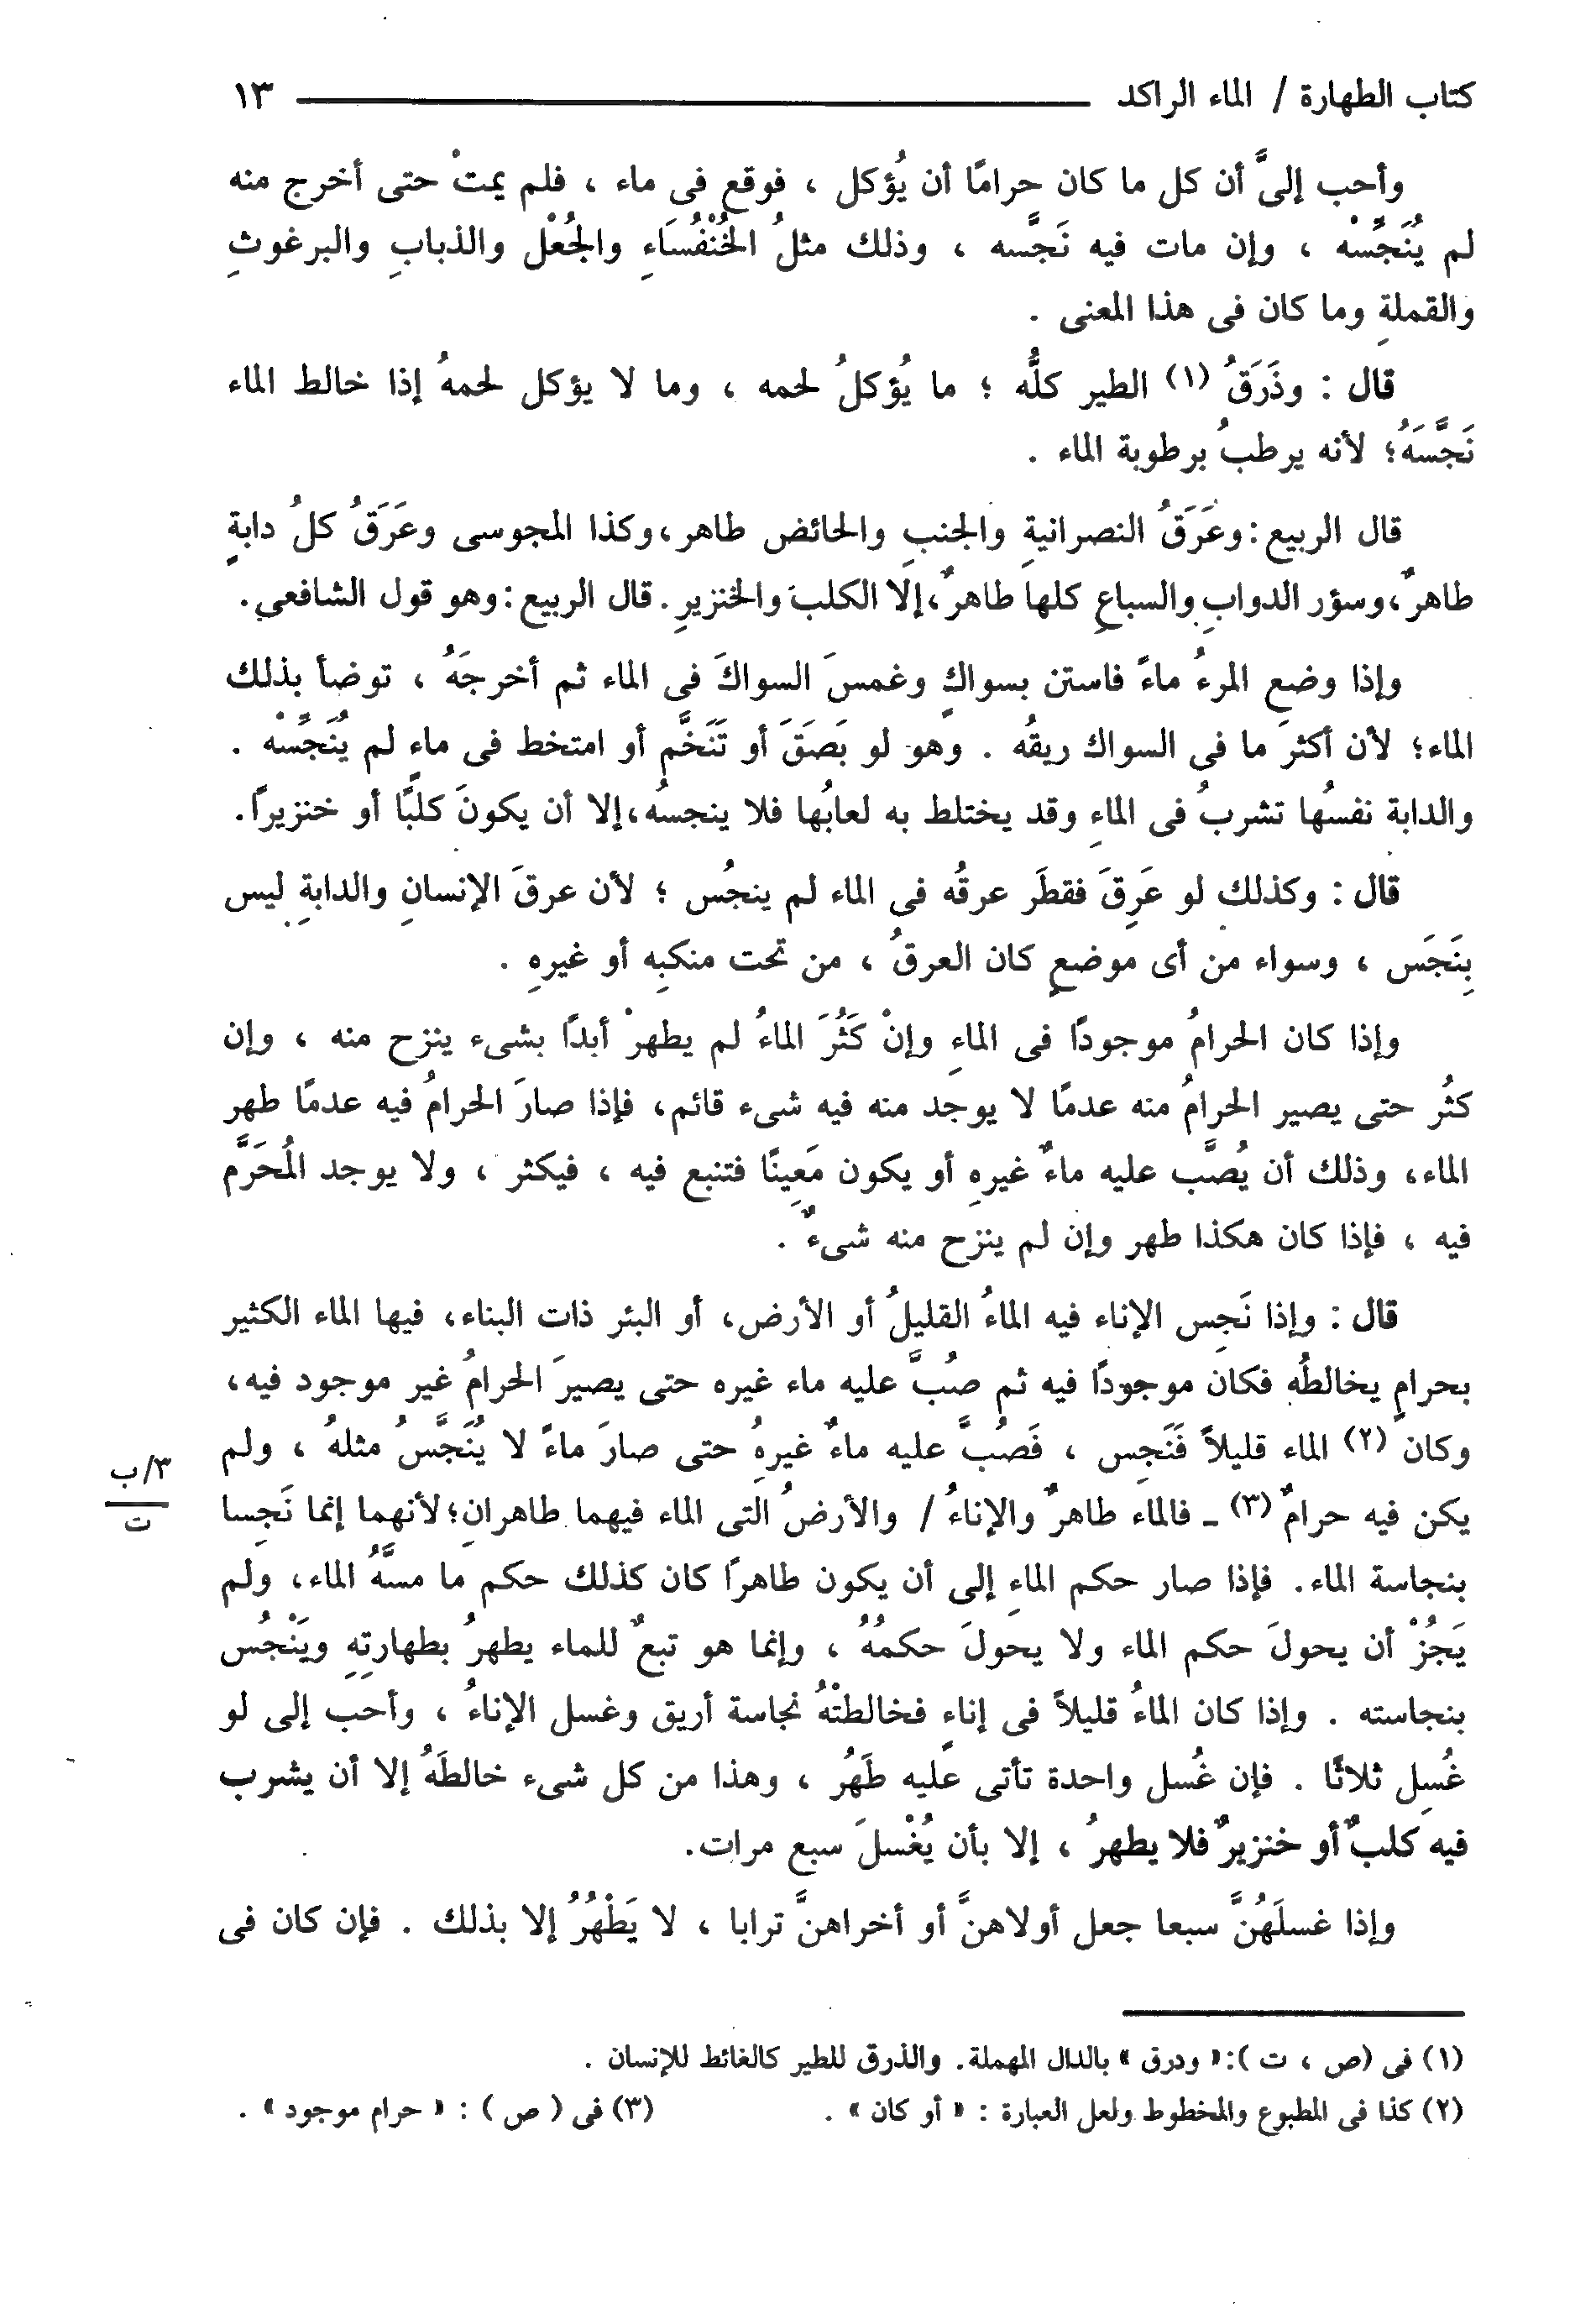 كتاب الطهارة / الماء الراكد ١٣
وأحب إلىَّ أن كل ما كان حرامًا أن يُؤكل ، فوقع فى ماء ، فلم يمتْ حتى أخرج منه
لم يُنَجِّسْه ، وإن مات فيه نَجَّسه ، وذلك مثلُ الخُنْفُسَاءِ والجُعْل والذبابِ والبرغوثِ
والقملةِ وما كان فى هذا المعنى .
قال : وذَرَقُ (١) الطير كلُّه ؛ ما يُؤكلُ لحمه ، وما لا يؤكل لحمهُ إذا خالط الماء
نَجَّسَهُ؛ لأنه يرطبُ برطوبة الماء .
قال الربيع : وعَرَقُ النصرانيةِ والجنبِ والحائض طاهر ، وكذا المجوسى وعَرَقُ كلُ دابةٍ
طاهرٌ ، وسؤر الدوابِ والسباعِ كلها طاهرٌ ، إلا الكلبَ والخنزيرِ . قال الربيع : وهو قول الشافعي .
وإذا وضع المرءُ ماءً فاستن بسواكٍ وغمسَ السواكَ فى الماء ثم أخرجَهُ ، توضأ بذلك
الماء؛ لأن أكثرَ ما فى السواك ريقُه . وهو لو بَصَقَ أو تَنَخَّم أو امتخط فى ماء لم يُنَجِّسْه .
والدابة نفسُها تشربُ فى الماءِ وقد يختلط به لعابُها فلا ينجسُه ، إلا أن يكونَ كلبًا أو خنزيرًا .
قال : وكذلك لو عَرِقَ فقطَر عرقُه فى الماء لم ينجُس ؛ لأن عرقَ الإنسانِ والدابةِ ليس
بِنَجَس ، وسواء من أى موضعٍ كان العرقُ ، من تحت منكبِه أو غيرهِ .
وإذا كان الحرامُ موجودًا فى الماءِ وإنْ كَثُرَ الماءُ لم يطهرْ أبدًا بشىء ينزح منه ، وإن
كثُر حتى يصير الحرامُ منه عدمًا لا يوجد منه فيه شىء قائم، فإذا صارَ الحرامُ فيه عدمًا طهر
الماء، وذلك أن يُصَّب عليه ماءٌ غيرهِ أو يكون مَعِينًا فتنبع فيه ، فيكثر ، ولا يوجد المُحَرَّم
فيه ، فإذا كان هكذا طهر وإن لم ينزح منه شىءٌ .
قال : وإذا نَجِس الإناء فيه الماءُ القليلُ أو الأرض، أو البئر ذات البناء، فيها الماء الكثير
بحرامٍ يخالطُه فكان موجودًا فيه ثم صُبَّ عليه ماء غيره حتى يصيرَ الحرامُ غير موجود فيه،
وكان (٢) الماء قليلاً فَنَجِس ، فَصُبَّ عليه ماءٌ غيرهُ حتى صارَ ماءً لا يُنَجَّسُ مثلهُ ، ولم
٣/ب
ت
يكن فيه حرامٌ (٣) ـ فالماء طاهرٌ والإناءُ / والأرضُ التى الماء فيهما طاهرانِ؛ لأنهما إنما نَجِسا
بنجاسة الماء. فإذا صار حكم الماءِ إلى أن يكون طاهرًا كان كذلك حكم ما مسَّهُ الماء، ولم
يَجُزْ أن يحولَ حكم الماء ولا يحولَ حكمُهُ ، وإنما هو تبعٌ للماء يطهرُ بطهارتِهِ ويَنْجُس
بنجاسته . وإذا كان الماءُ قليلاً فى إناءٍ فخالطتْهُ نجاسة أريق وغسل الإناءُ ، وأحب إلى لو
غُسِل ثلاثًا . فإن غُسل واحدة تأتى عليه طَهُر ، وهذا من كل شىء خالطَهُ إلا أن يشرب
فيه كلبٌ أو خنزيرٌ فلا يطهرُ ، إلا بأن يُغْسلَ سبع مرات.
وإذا غسلَهُنَّ سبعا جعل أولاهنَّ أو أخراهنَّ ترابا ، لا يَطْهُرُ إلا بذلك . فإن كان فى
(١) فى (ص ، ت ): « ودرق » بالدال المهملة. والذرق للطير كالغائط للإنسان .
(٢) كذا فى المطبوع والمخطوط ولعل العبارة : « أو كان » . (٣) فى ( ص ) : « حرام موجود » .